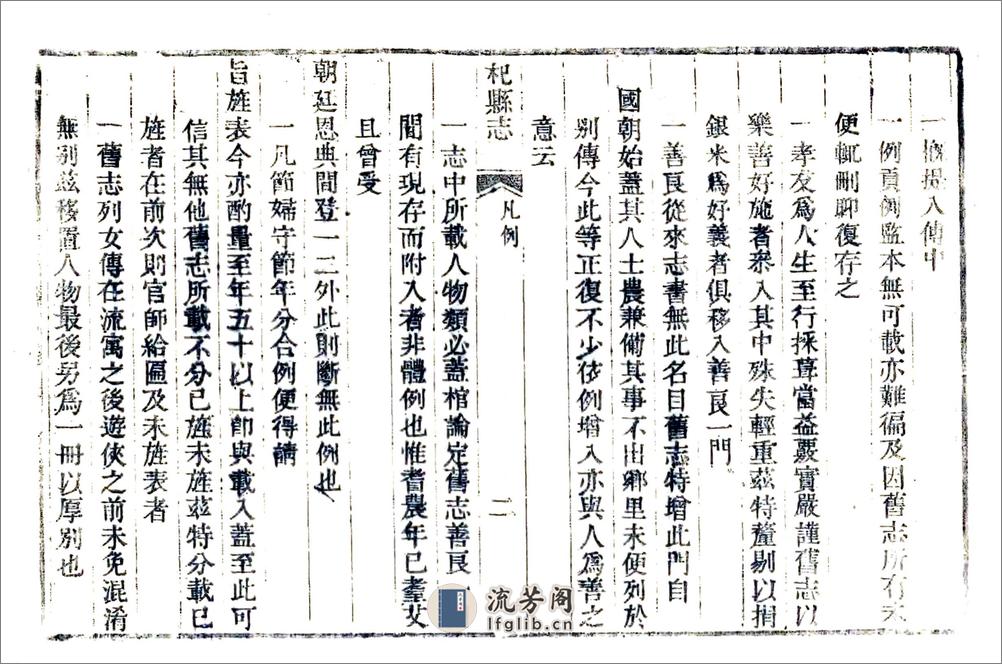 一撫提入傳中
一例貢例監本無可載亦難徧及因舊志所有未
便輒刪聊復存之
一孝友爲人生至行採葺當益覈實嚴謹舊志以
樂善好施者叅入其中殊失輕重茲特釐剔以捐
銀米爲好義者俱移入善良一門
一善良從來志書無此名目舊志特增此門自
國朝始蓋其人士農兼備其事不出鄉里未便列於
别傳今此等正復不少依例增入亦與人爲善之
意云
杞縣志
凡例
二
一志中所載人物類必蓋棺論定舊志善良
間有現存而附入者非體例也惟耆農年已耄艾
且曾受
朝廷恩典間登一二外此則斷無此例也
一凡節婦守節年分合例便得請
旨旌表今亦酌量至年五十以上卽與載入蓋至此可
信其無他舊志所載不分已旌未旌茲特分載已
旌者在前次則官師給匾及未旌表者
一舊志列女傳在流寓之後遊俠之前未免混淆
無别茲移置人物最後另爲一冊以厚别也
流芳阁
lfglib.cn